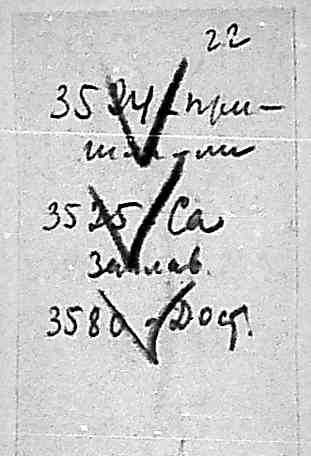 22
3524 при-
шл ли
3525 Са
Заглав.
3580 - Дост.